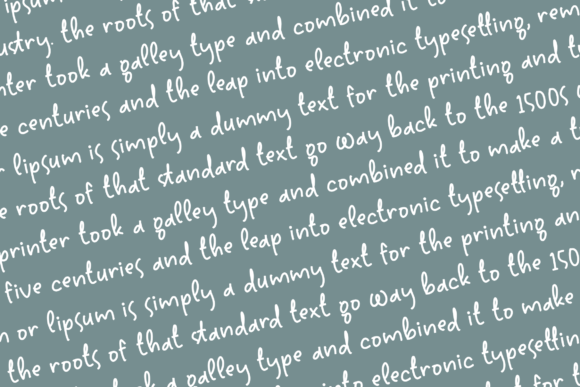 ipsum
ustry. the roots of that
nter took a galley type and combined it to
e centuries and the leap into electronic typesetting, rem
r lipsum is simply a dummy text for the printing and t
e roots of that standard text go way back to the 1500s
printer took a galley type and combined it to make a t
five centuries and the leap into electronic typesetting, r
m or lipsum is simply a dummy text for the printing an
the roots of that standard text go way back to the 150
took a galley type and combined it to make
into electronic typesettin
for t